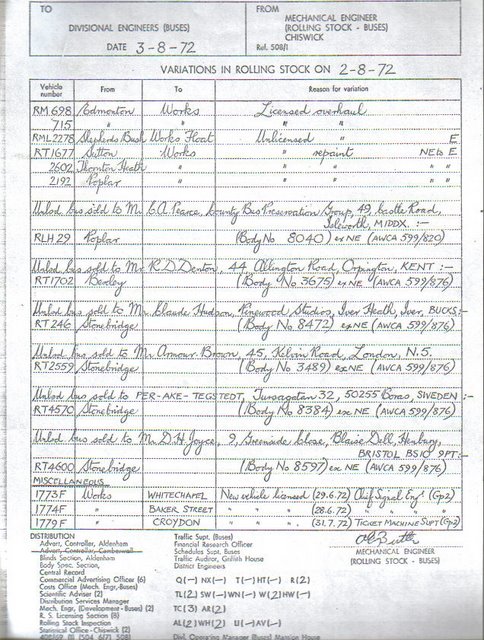 TO
DIVISIONAL ENGINEERS (BUSES)
DATE 3-8-72
FROM
MECHANICAL ENGINEER
(ROLLING STOCK - BUSES)
CHISWICK
Ref. 508/1
VARIATIONS IN ROLLING STOCK ON 2-8-72
Vehicle number From To Reason for variation
RM 698 Edmonton Works Licensed overhaul
715 " " " "
RML2278 Shepherds Bush Works Float Unlicensed " E
RT1677 Sutton Works " repaint NE to E
2602 Thornton Heath " " " " "
2192 Poplar " " " " "
Unlsd bus sold to Mr. C.A. Pearce, County Bus Preservation Group, 49, Castle Road,
Isleworth, MIDDX. :-
RLH 29 Poplar (Body No 8040) ex NE (AWCA 599/820)
Unlsd bus sold to Mr. R.D. Denton, 44, Allington Road, Orpington, KENT :-
RT1702 Bexley (Body No 3675) ex NE (AWCA 599/876)
Unlsd bus sold to Mr. Claude Hudson, Pinewood Studios, Iver Heath, Iver, BUCKS:-
RT 246 Stonebridge (Body No 8472) ex NE (AWCA 599/876)
Unlsd bus sold to Mr. Armour Brown, 45, Kelvin Road, London, N.5.
RT2559 Stonebridge (Body No 3489) ex NE (AWCA 599/876)
Unlsd bus sold to PER-AKE-TEGSTEDT, 32, 50255 Boras, SWEDEN :-
RT4570 Stonebridge (Body No 8384) ex NE (AWCA 599/876)
Unlsd bus sold to Mr. D.H. Joyce, 9, Grenade Close, Blaise Dell, Henbury,
BRISTOL BS10 9PT:-
RT4600 Stonebridge (Body No 8597) ex NE (AWCA 599/876)
MISCELLANEOUS
1773F Works WHITECHAPEL New vehicle licensed (29.6.72) Chief Signal Engr (Gp2)
1774F " BAKER STREET " " " (28.6.72) " " " "
1779F " CROYDON " " " (31.7.72) TICKET MACHINE SUPT (Gp2)
DISTRIBUTION
Advert. Controller, Aldenham
Advert. Controller, Camberwell
Blinds Section, Aldenham
Body Spec. Section,
Central Record
Commercial Advertising Officer (6)
Costs Office (Mech. Engr.-Buses)
Scientific Adviser (2)
Distribution Services Manager
Mech. Engr. (Development - Buses) (2)
R. S. Licensing Section (8)
Rolling Stock Inspection
Statistical Office - Chiswick (2)
Traffic Supt. (Buses)
Financial Research Officer
Schedules Supt. Buses
Traffic Auditor, Griffith House
District Engineers
Q(-) NX(-) T(-) HT(-) R(2)
TL(2) SW(-) WN(-) W(2) HW(-)
TC(3) AR(2)
AL(2) WH(2) U(-) AV(-)
Divl. Operating Manager (Buses) Mansion House
MECHANICAL ENGINEER
(ROLLING STOCK - BUSES)